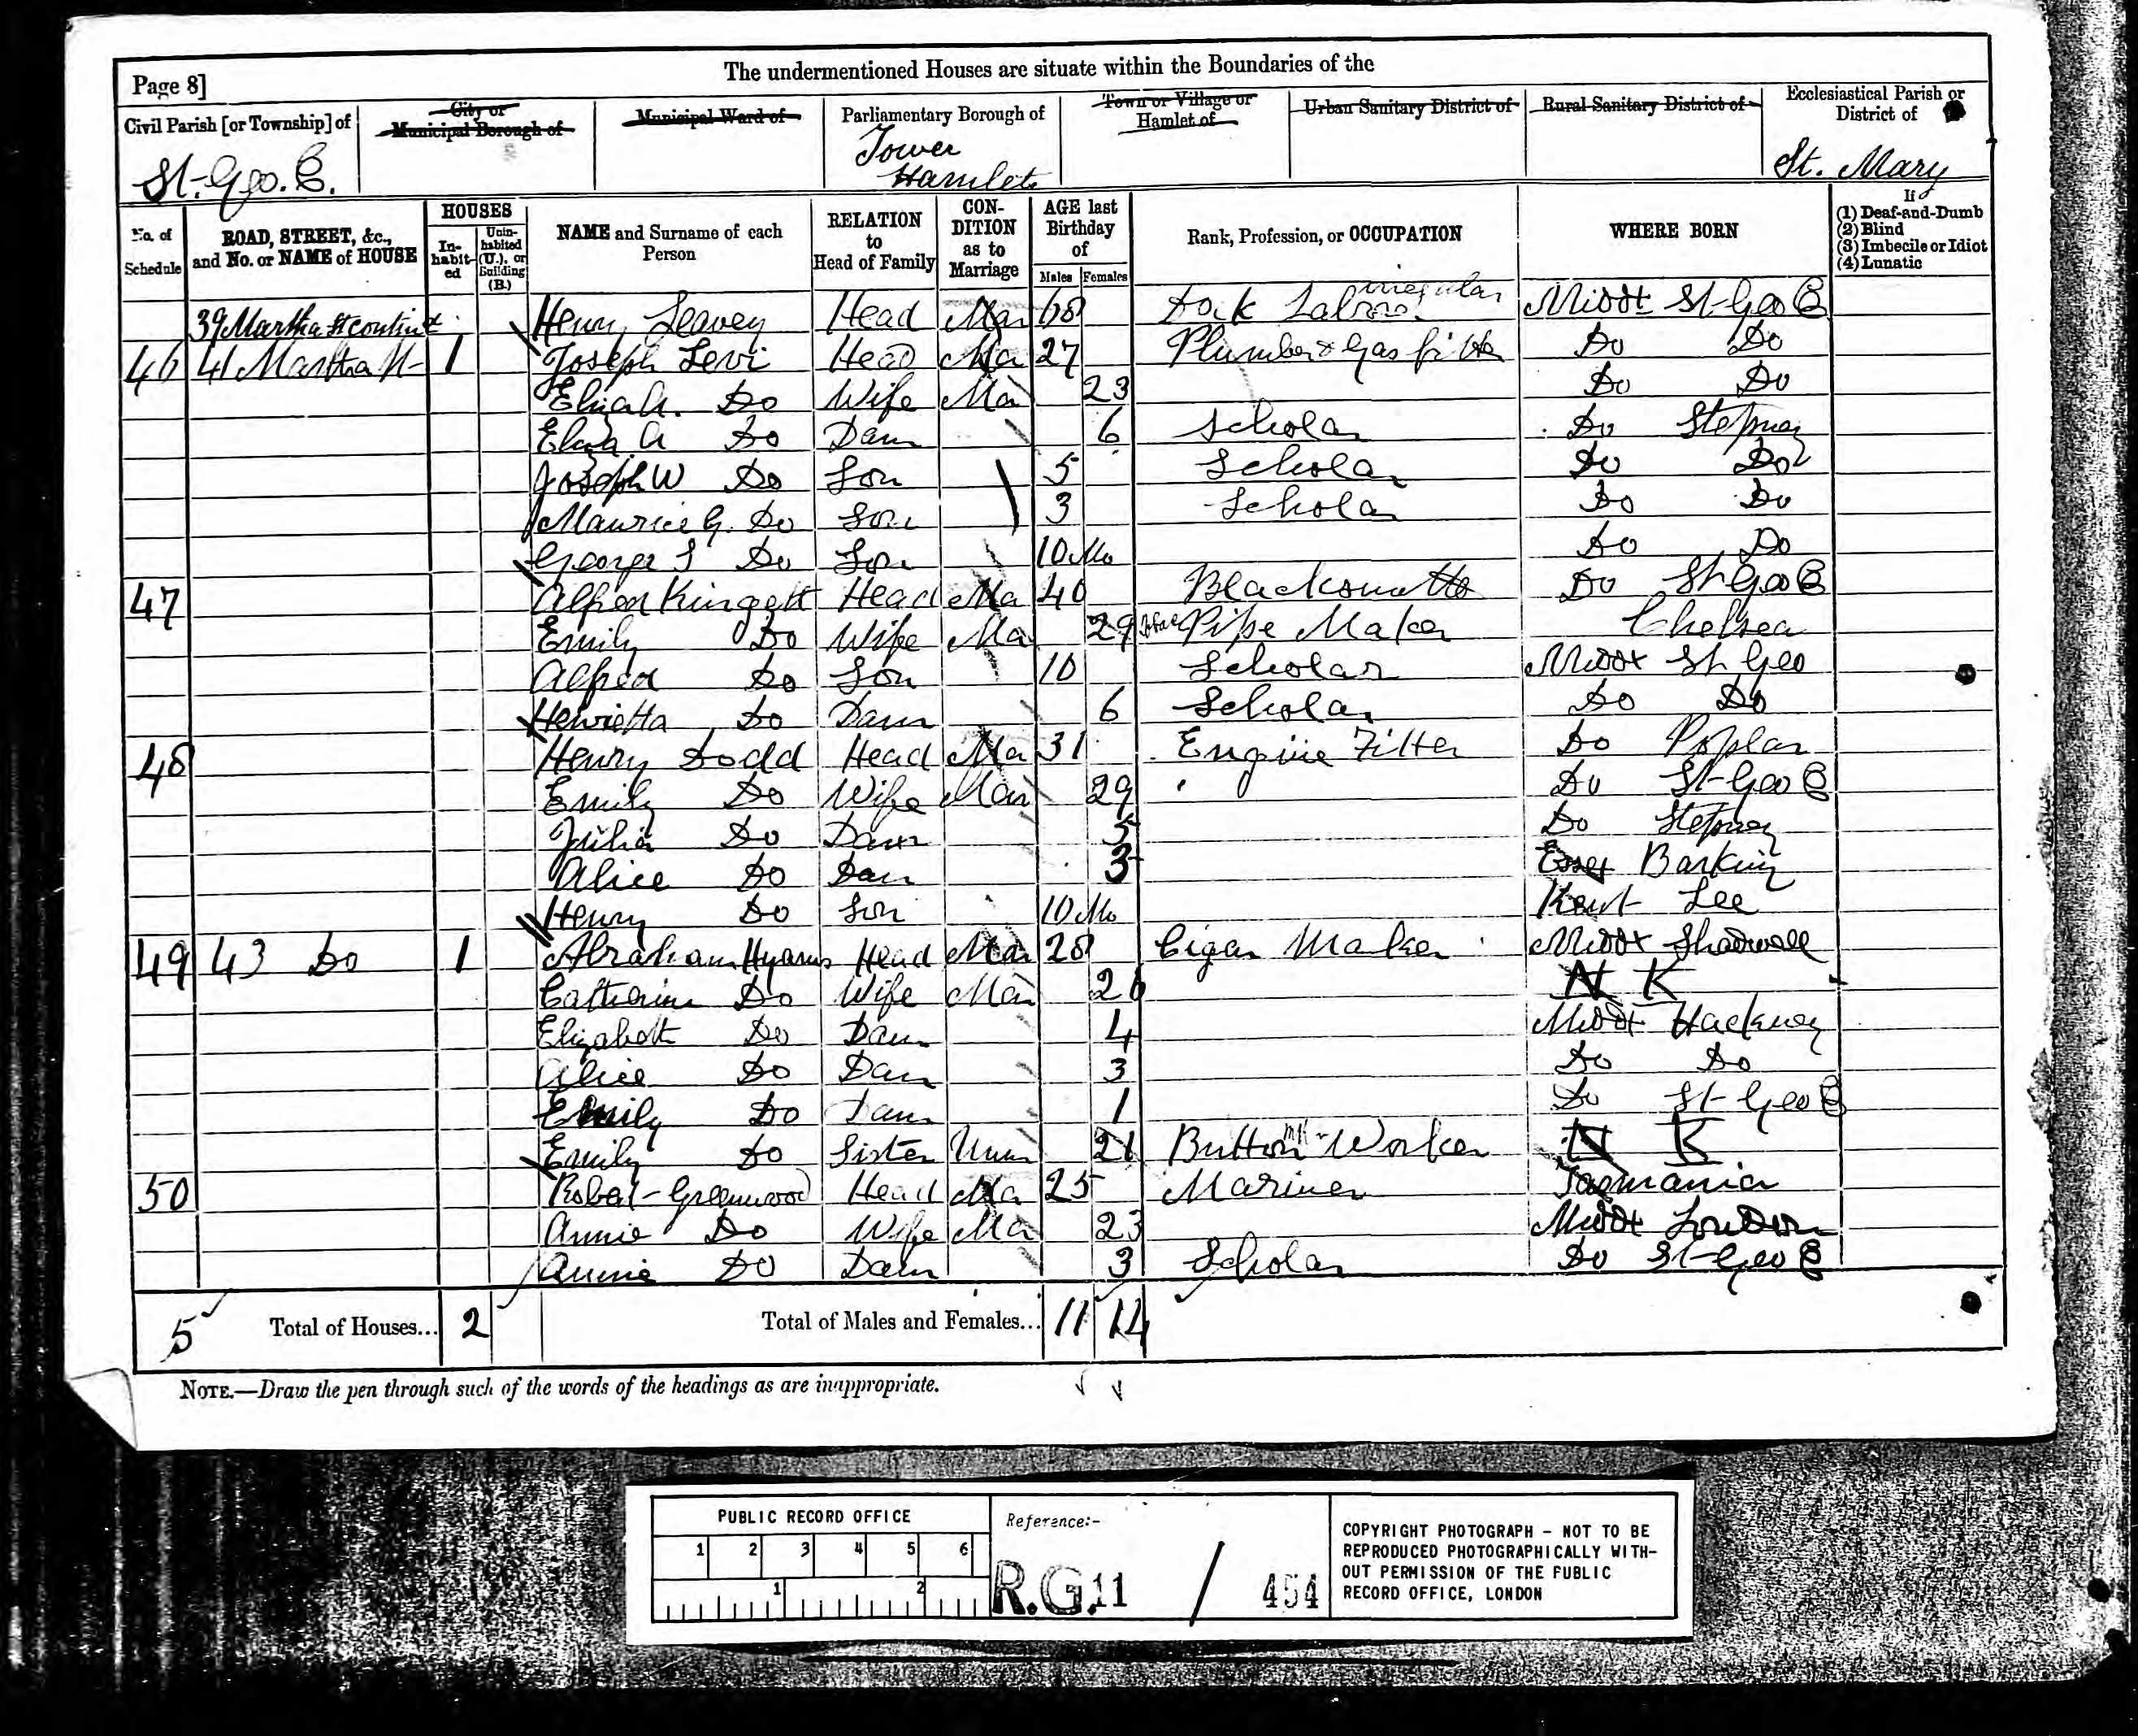 The undermentioned Houses are situate within the Boundaries of the
Page 8]
Civil Parish [or Township] of
City or Municipal Borough of
Municipal Ward of
Parliamentary Borough of
Town or Village or Hamlet of
Urban Sanitary District of
Rural Sanitary District of
Ecclesiastical Parish or District of
St. Geo. E.
Tower Hamlets
St. Mary
No. of Schedule
ROAD, STREET, &c., and No. or NAME of HOUSE
HOUSES
In-habit-ed
Unin-habited (U.), or Building (B.)
NAME and Surname of each Person
RELATION to Head of Family
CON-DITION as to Marriage
AGE last Birthday of
Males Females
Rank, Profession, or OCCUPATION
WHERE BORN
If
(1) Deaf-and-Dumb
(2) Blind
(3) Imbecile or Idiot
(4) Lunatic
39 Martha St contind Henry Leavey Head Mar 68 Dock Labour irregular Middx St Geo E
46 41 Martha St 1 Joseph Levi Head Ma 27 Plumber & Gas fitter Do Do
Eliza A. Do Wife Ma 23 Do Do
Eliza A Do Daur 6 Scholar Do Stepney
Joseph W Do Son 5 Scholar Do Do
Maurice G. Do Son 3 Scholar Do Do
George S Do Son 10 Mo Do Do
47 Alfred Kingett Head Ma 40 Blacksmith Do St Geo E
Emily Do Wife Ma 29 Pipe Maker Chelsea
Alfred Do Son 10 Scholar Middx St Geo
Henrietta Do Daur 6 Scholar Do Do
48 Henry Dodd Head Ma 31 Engine Fitter Do Poplar
Emily Do Wife Mar 29 Do St Geo E
Julia Do Daur 5 Do Stepney
Alice Do Daur 3 Essex Barking
Henry Do Son 10 Mo Kent Lee
49 43 Do 1 Abraham Hyams Head Mar 28 Cigar Maker Middx Shadwell
Catherine Do Wife Mar 26 N K
Elizabeth Do Daur 4 Middx Hackney
Alice Do Daur 3 Do Do
Emily Do Daur 1 Do St Geo E
Emily Do Sister Unm 21 Button Worker N K
50 Robert Greenwood Head Ma 25 Mariner Tasmania
Annie Do Wife Ma 23 Middx London
Annie Do Daur 3 Scholar Do St Geo E
5 Total of Houses... 2 Total of Males and Females... 11 14
NOTE.—Draw the pen through such of the words of the headings as are inappropriate.
PUBLIC RECORD OFFICE
1 2 3 4 5 6
1 2
Reference:-
R.G. 11 / 454
COPYRIGHT PHOTOGRAPH - NOT TO BE
REPRODUCED PHOTOGRAPHICALLY WITH-
OUT PERMISSION OF THE PUBLIC
RECORD OFFICE, LONDON